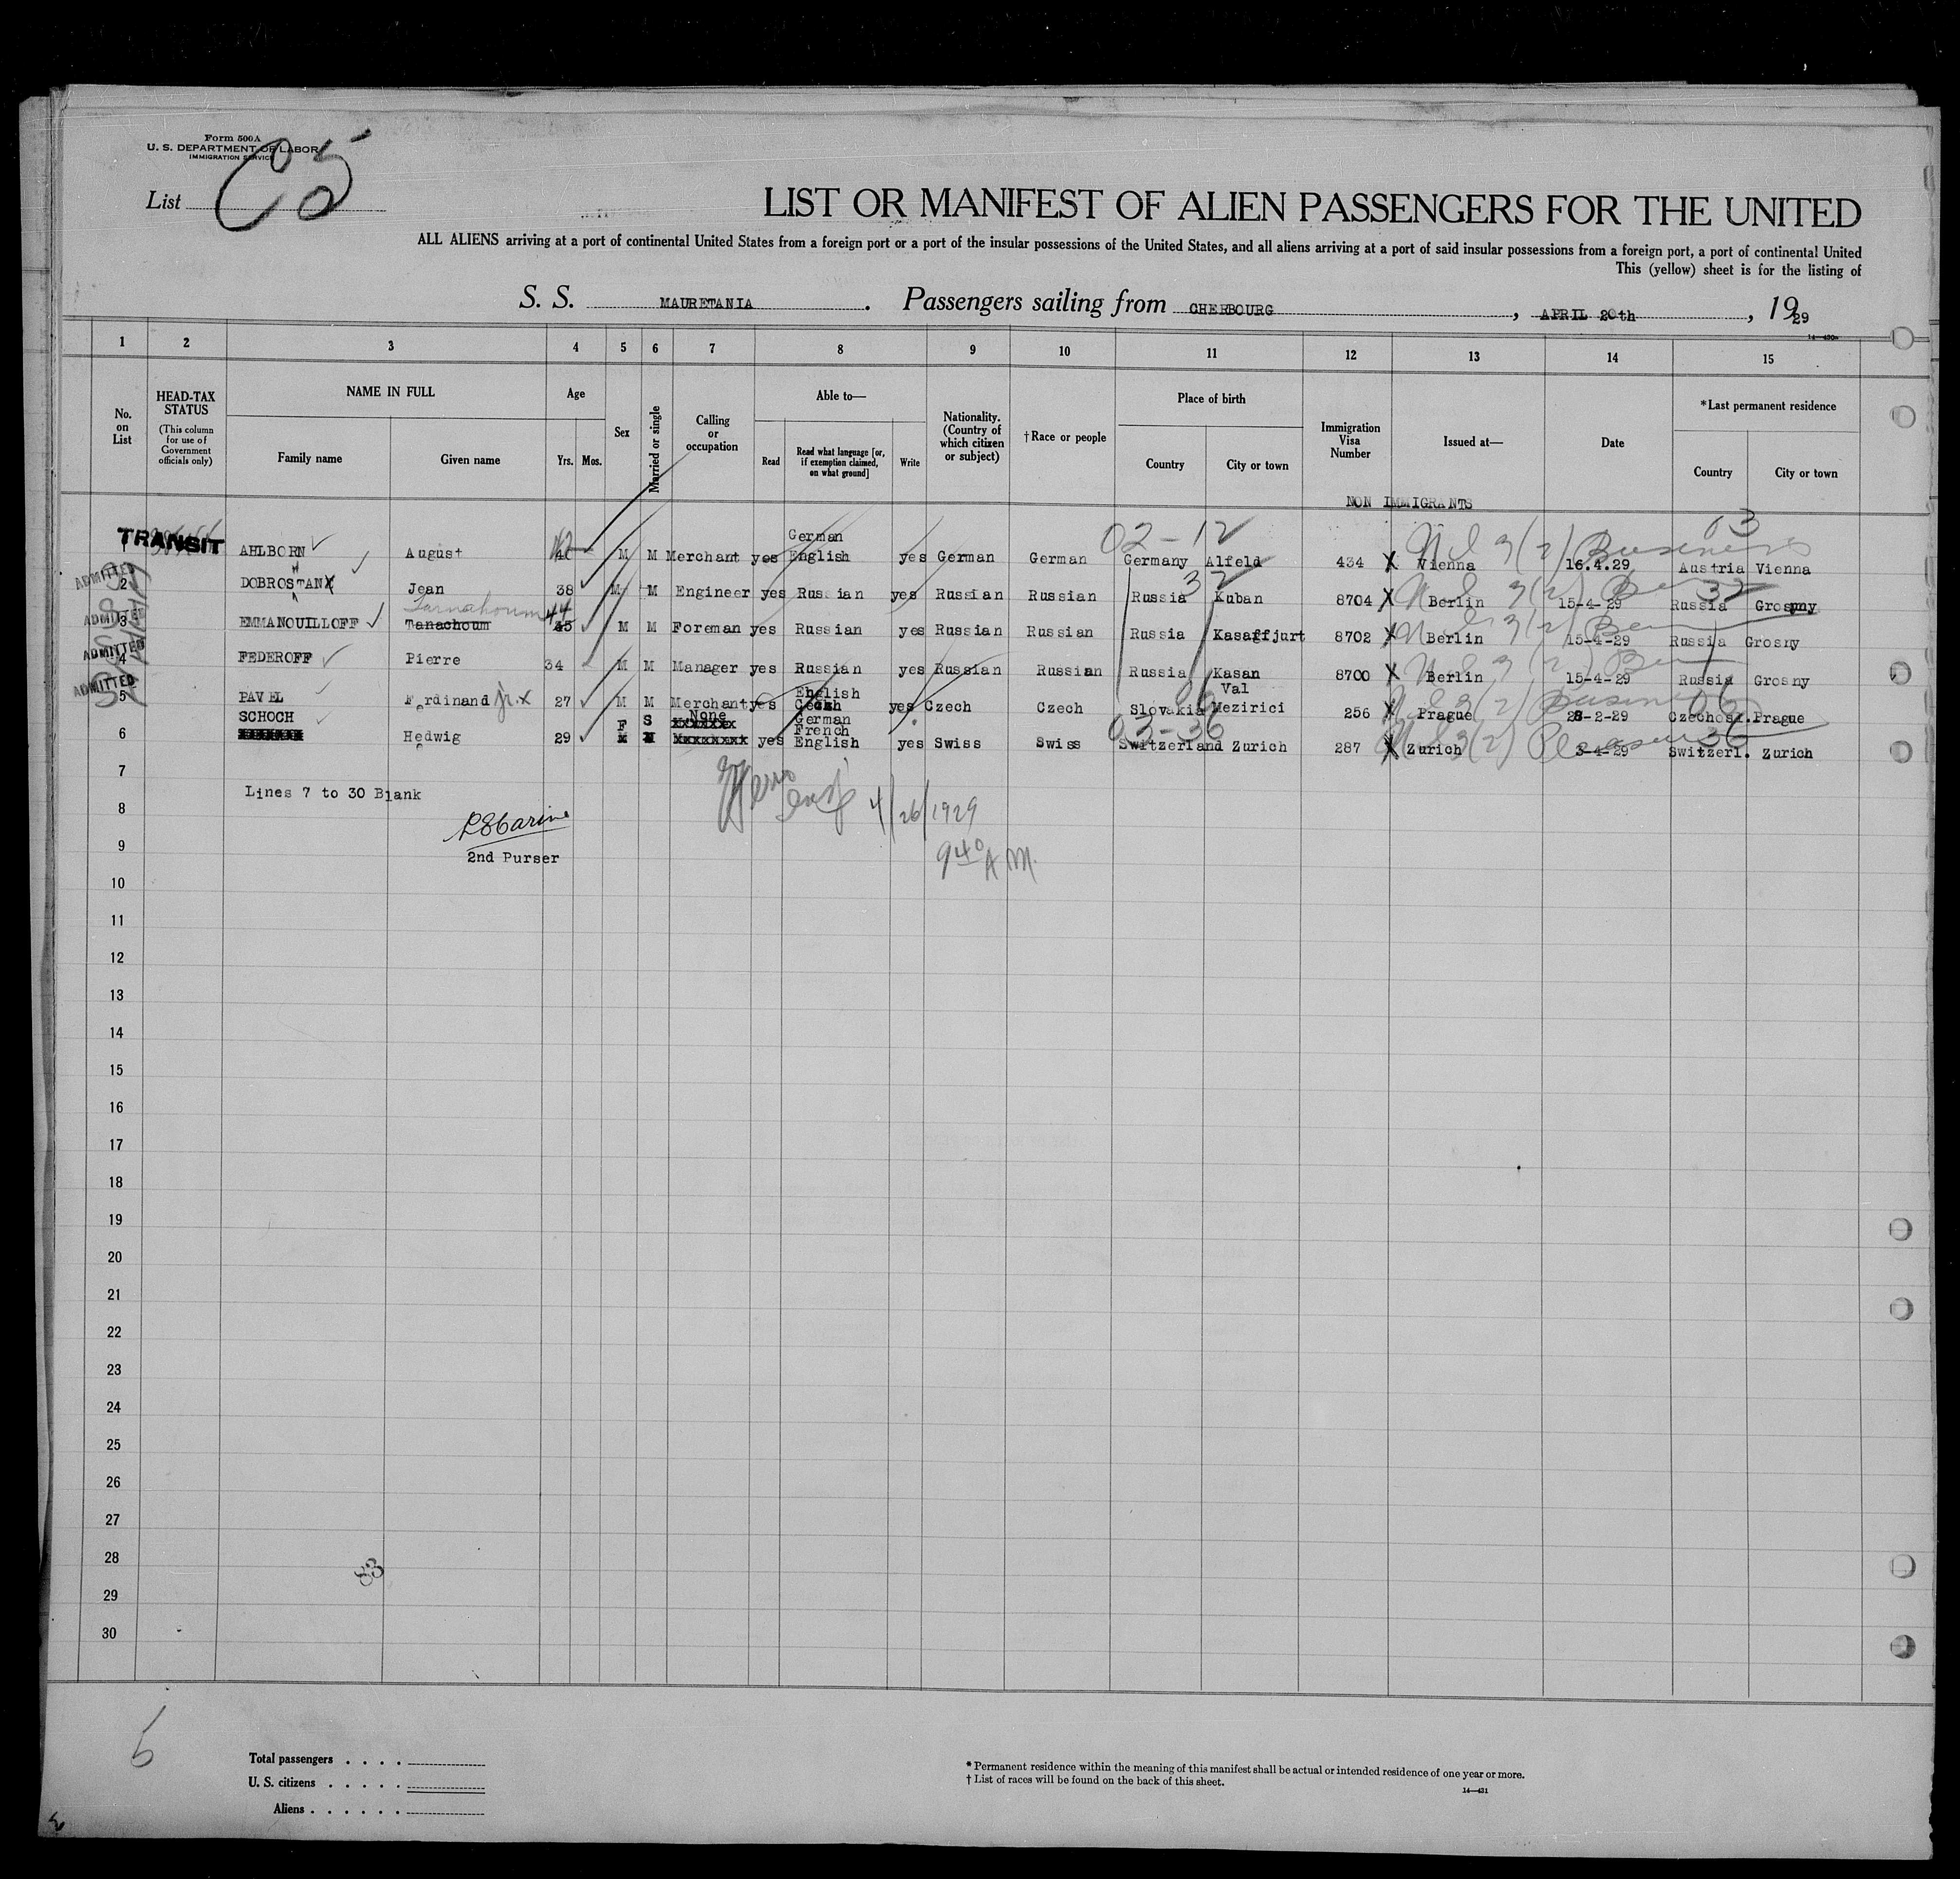 Form 500 A
U. S. DEPARTMENT OF LABOR
IMMIGRATION SERVICE
List C5
LIST OR MANIFEST OF ALIEN PASSENGERS FOR THE UNITED
ALL ALIENS arriving at a port of continental United States from a foreign port or a port of the insular possessions of the United States, and all aliens arriving at a port of said insular possessions from a foreign port, a port of continental United
This (yellow) sheet is for the listing of
S. S. MAURETANIA. Passengers sailing from CHERBOURG, APRIL 20th, 1929
14—430a
1 2 3 4 5 6 7 8 9 10 11 12 13 14 15
No. on List
HEAD-TAX STATUS (This column for use of Government officials only)
NAME IN FULL
Family name
Given name
Age
Yrs. Mos.
Sex
Married or single
Calling or occupation
Able to—
Read
Read what language [or, if exemption claimed, on what ground]
Write
Nationality. (Country of which citizen or subject)
†Race or people
Place of birth
Country
City or town
Immigration Visa Number
Issued at—
Date
*Last permanent residence
Country
City or town
NON IMMIGRANTS
02-12 03
TRANSIT
1 AHLBORN August 40 M M Merchant yes German English yes German German Germany Alfeld 434 X Vienna 16.4.29 Austria Vienna
Business
ADMITTED
2 DOBROSTANX Jean 38 M M Engineer yes Russian yes Russian Russian Russia Kuban 8704 X Berlin 15-4-29 Russia Grosny
32 32
ADMITTED
Tarnahoum 44
3 EMMANOUILLOFF Tanachoum 45 M M Foreman yes Russian yes Russian Russian Russia Kasaffjurt 8702 X Berlin 15-4-29 Russia Grosny
ADMITTED
4 FEDEROFF Pierre 34 M M Manager yes Russian yes Russian Russian Russia Kasan 8700 X Berlin 15-4-29 Russia Grosny
ADMITTED
5 PAVEL Ferdinand jr. x 27 M M Merchant yes English Czech yes Czech Czech Slovakia Val Mezirici 256 X Prague 28-2-29 Czechosl. Prague
Business 06
03-36 36
6 SCHOCH Hedwig 29 F S None yes German French English yes Swiss Swiss Switzerland Zurich 287 X Zurich 3-4-29 Switzerl. Zurich
Pleasure
7
Lines 7 to 30 Blank
8
4/26/1929
9
2nd Purser
9 40 A M.
10
11
12
13
14
15
16
17
18
19
20
21
22
23
24
25
26
27
28
83
29
30
5
Total passengers . . . .
U. S. citizens . . . . .
Aliens . . . . . .
* Permanent residence within the meaning of this manifest shall be actual or intended residence of one year or more.
† List of races will be found on the back of this sheet.
14—431